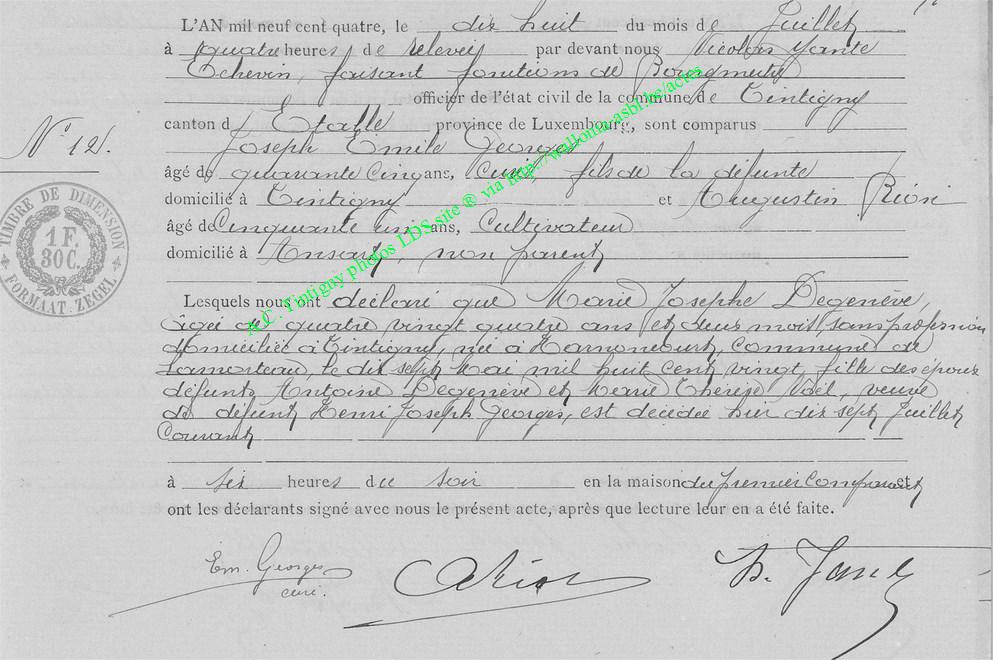 L'AN mil neuf cent quatre, le dix huit du mois de Juillet
à quatre heures de relevée par devant nous Nicolas Jante
Echevin, faisant fonctions de Bourgmestre
officier de l'état civil de la commune de Tintigny
canton d'Etalle province de Luxembourg, sont comparus
Joseph Emile Georges
N° 12.
âgé de quarante cinq ans, Curé, fils de la défunte
domicilié à Tintigny et Augustin Rion
âgé de Cinquante un ans, Cultivateur
domicilié à Ansart, non parent
Lesquels nous ont déclaré que Marie Josephe Degenève,
âgée de quatre vingt quatre ans et deux mois, sans profession
domiciliée à Tintigny, née à Harnoncourt, Commune de
Lamorteau, le dix sept Mai mil huit cent vingt, fille des époux
défunts Antoine Degenève et Marie Thérèse Noël, veuve
de défunt Henri Joseph Georges, est décédée hier dix sept Juillet
Courant
à six heures du soir en la maison du premier Comparant et
ont les déclarants signé avec nous le présent acte, après que lecture leur en a été faite.
Em. Georges
curé.
A Rion
N. Jante
TIMBRE DE DIMENSION
1 F.
30 C.
FORMAAT ZEGEL
A.C. Tintigny photos LDS site ® via http://wallonia-asbl.be/actes